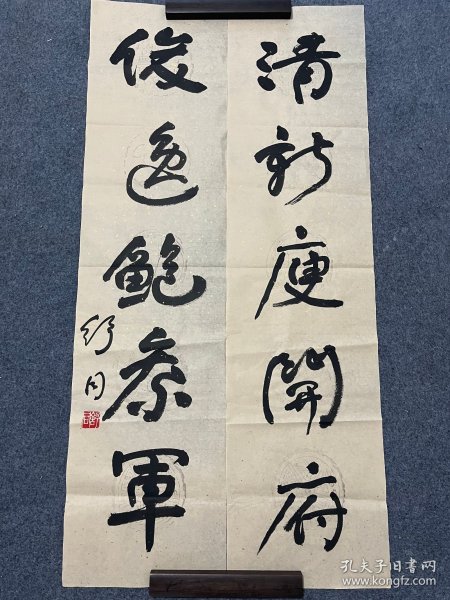 清新庾開府
俊逸鲍参軍
舒同
孔夫子旧书网
www.kongfz.com